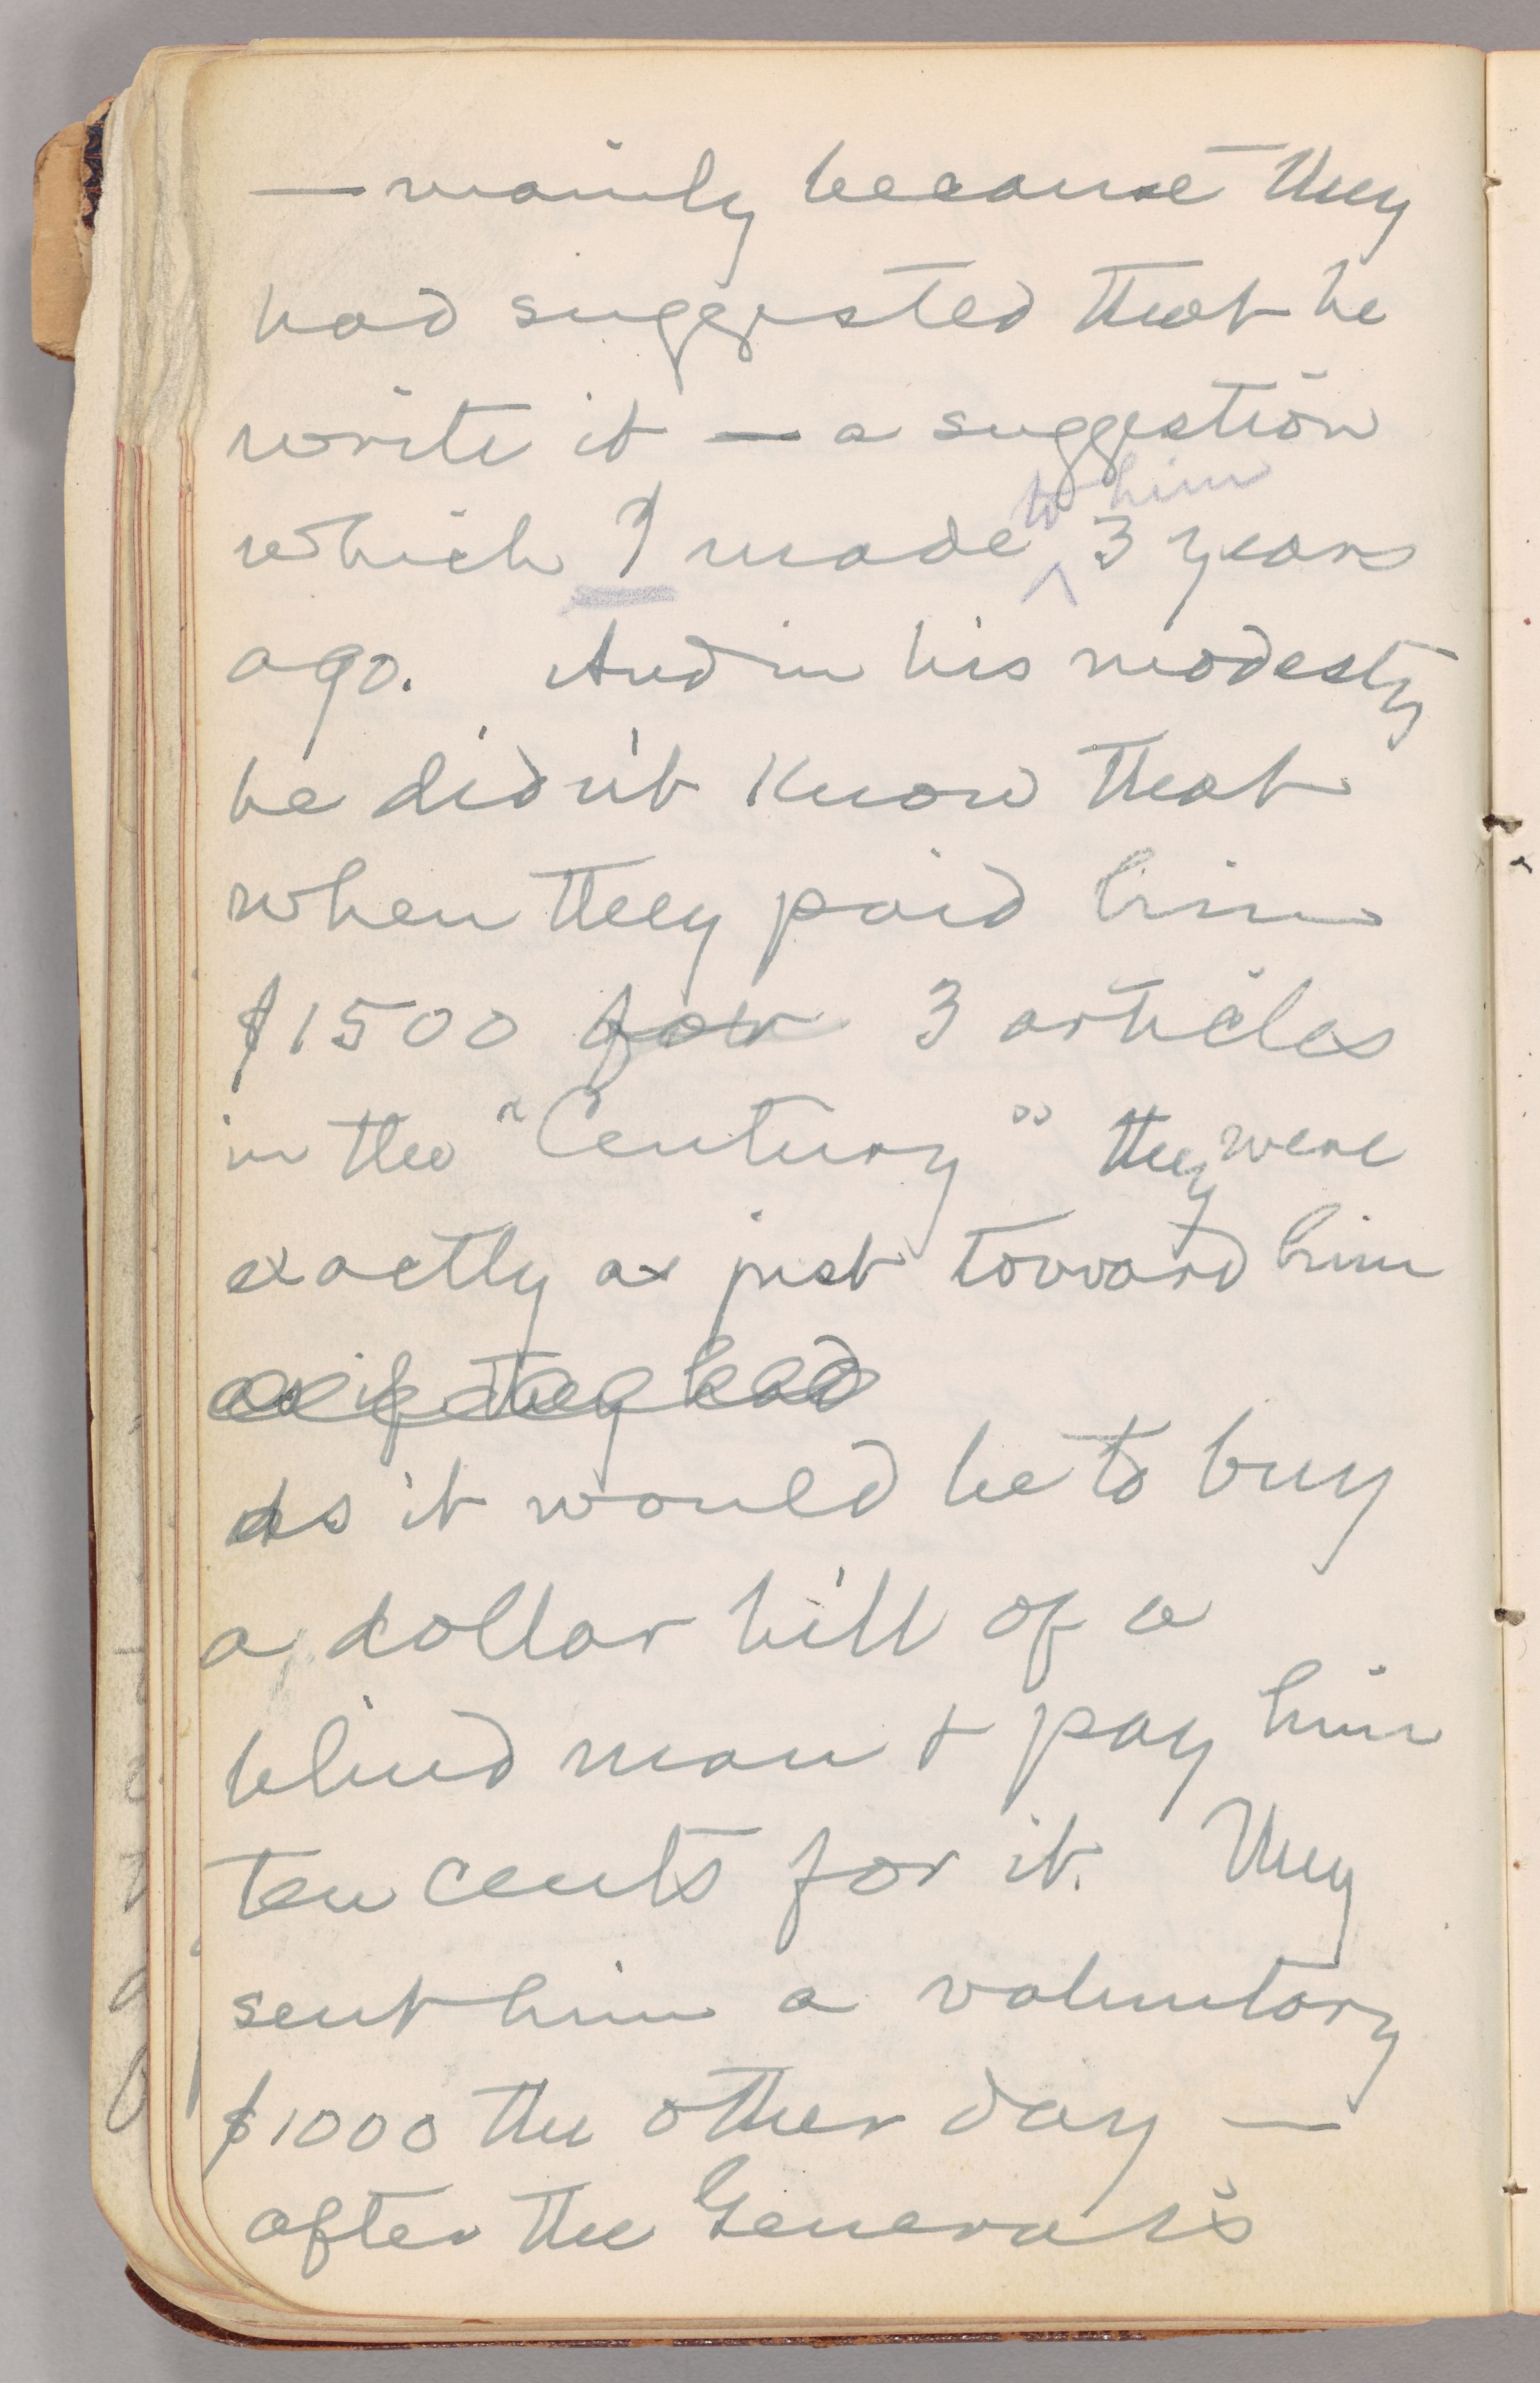 — mainly because they
had suggested that he
write it — a suggestion
which I made to him 3 years
ago. And in his modesty
he didn't know that
when they paid him
$1500 for 3 articles
in the "Century" they were
exactly as just toward him
as if they had
as it would be to buy
a dollar bill of a
blind man & pay him
ten cents for it. They
sent him a voluntary
$1000 the other day —
after the General's